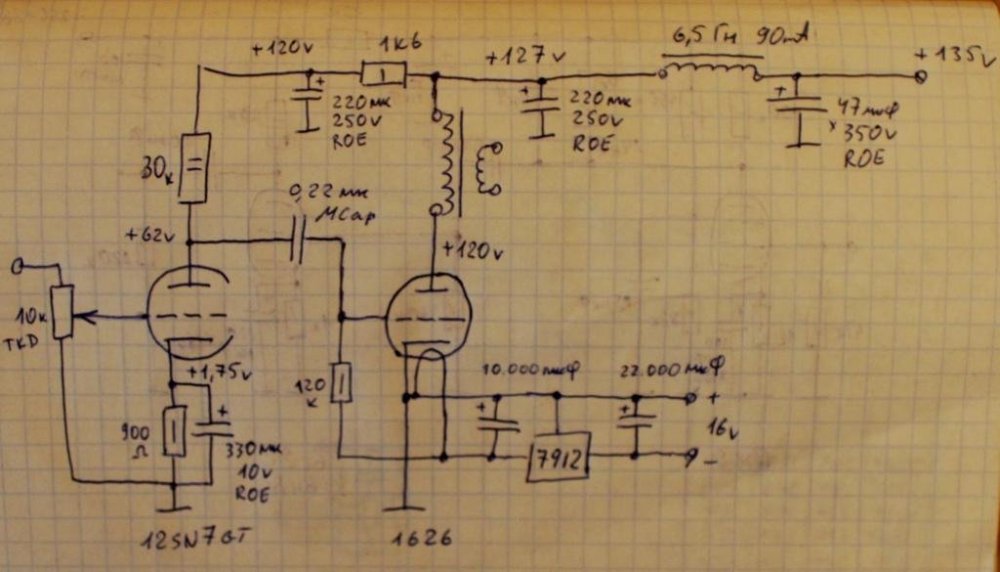 6,5 Гн 90mA
+120v
1к6
+127v
+135v
220мк
250v
ROE
220мк
250v
ROE
47мкф
x 350v
ROE
30к
0,22 мк
MCap
+62v
+120v
10к
TKD
+1,75v
120
к
10.000мкф
22.000мкф
+
16v
–
900
Ω
330мк
10v
ROE
7912
12SN7GT
1626